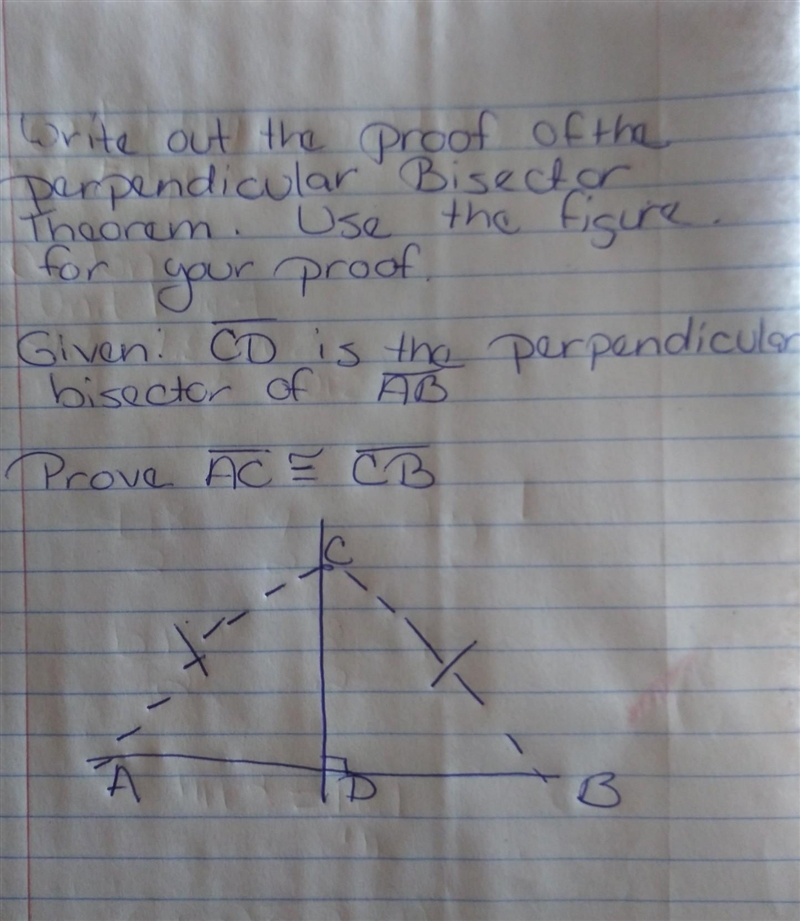 Write out the proof of the
perpendicular Bisector
Theorem. Use the figure.
for your proof.
Given: CD is the perpendicular
bisector of AB
Prove AC ≅ CB
C
A D B